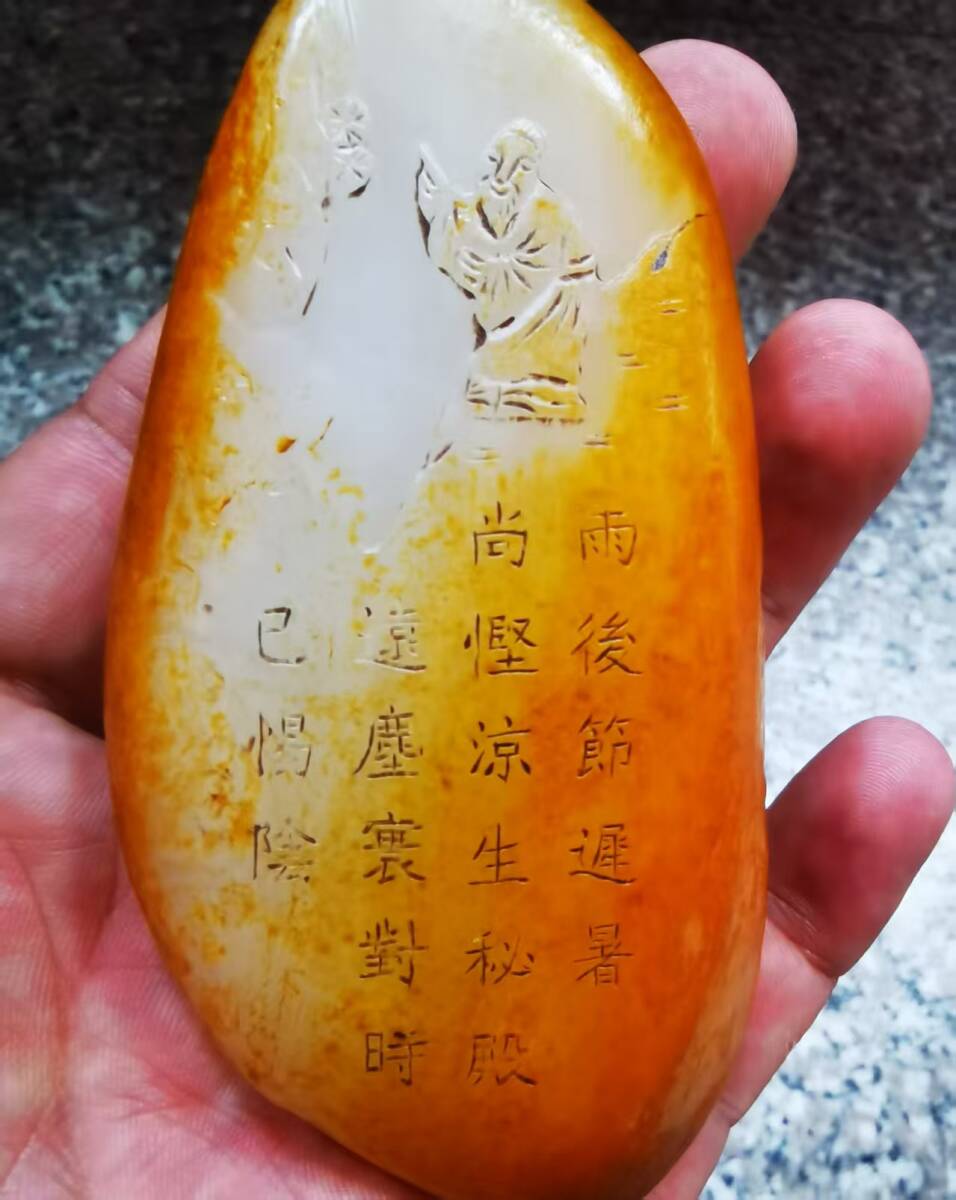 雨後節遲暑
尚慳涼生秘殿
遠塵寰對時
已惕陰